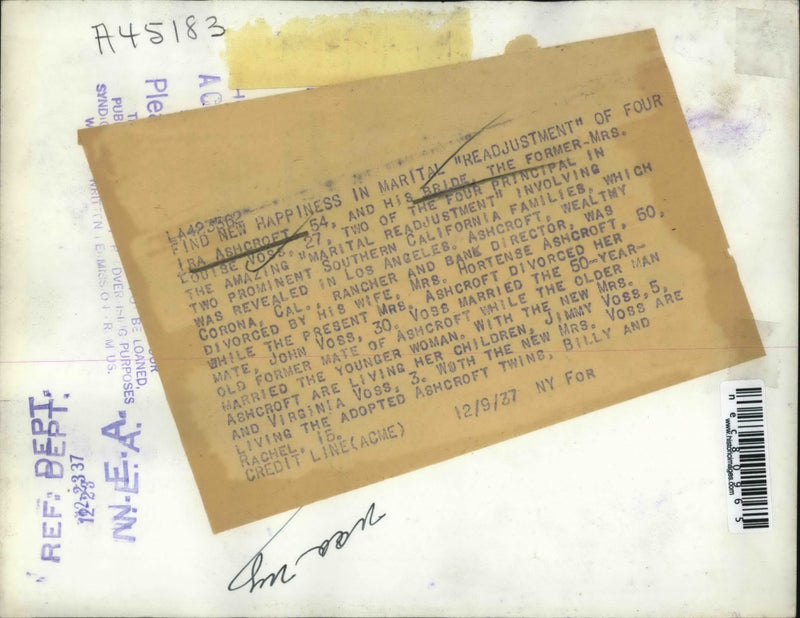 A45183
LA423362
FIND NEW HAPPINESS IN MARITAL "READJUSTMENT" OF FOUR
IRA ASHCROFT, 54, AND HIS BRIDE, THE FORMER MRS.
LOUISE VOSS, 27, TWO OF THE FOUR PRINCIPAL IN
THE AMAZING "MARITAL READJUSTMENT" INVOLVING
TWO PROMINENT SOUTHERN CALIFORNIA FAMILIES, WHICH
WAS REVEALED IN LOS ANGELES. ASHCROFT, WEALTHY
CORONA, CAL., RANCHER AND BANK DIRECTOR, WAS
DIVORCED BY HIS WIFE, MRS. HORTENSE ASHCROFT, 50,
WHILE THE PRESENT MRS. ASHCROFT DIVORCED HER
MATE, JOHN VOSS, 30. VOSS MARRIED THE 50-YEAR-
OLD FORMER MATE OF ASHCROFT WHILE THE OLDER MAN
MARRIED THE YOUNGER WOMAN. WITH THE NEW MRS.
ASHCROFT ARE LIVING HER CHILDREN, JIMMY VOSS, 5,
AND VIRGINIA VOSS, 3. WITH THE NEW MRS. VOSS ARE
LIVING THE ADOPTED ASHCROFT TWINS, BILLY AND
RACHEL, 15.
CREDIT LINE (ACME) 12/9/37 NY FOR
Ple
AC
H
PUB
SYND
BE LOANED,
PURPOSES
REF. DEPT.
N.E.A.
nec80965
www.historicimages.com